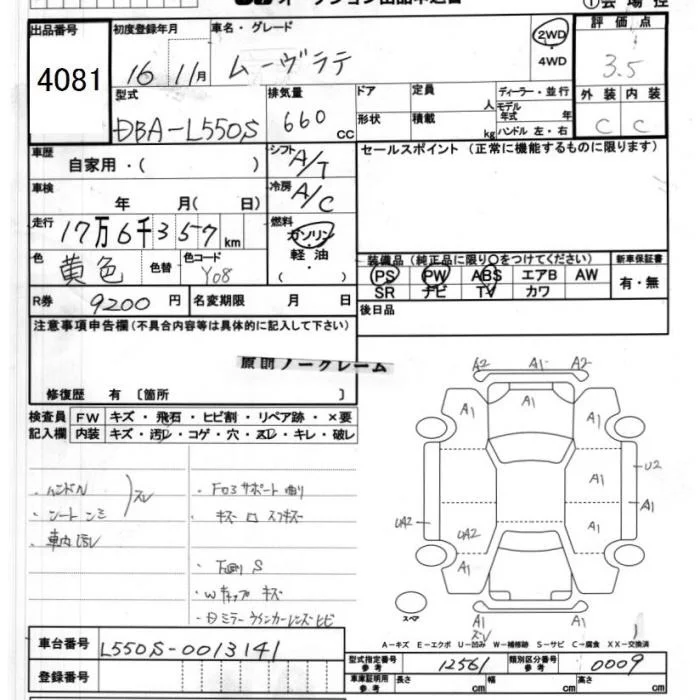 オークション出品申込書
①会場控
出品番号 初度登録年月 車名・グレード 評価点
4081 16 11月 ムーヴラテ 2WD ・ 4WD 3.5
型式 排気量 ドア 定員 人 ディーラー・並行 外装 内装
DBA-L550S 660 cc 形状 積載 kg モデル年式 年 ハンドル 左・右 C C
車歴 自家用・( ) シフト A/T セールスポイント (正常に機能するものに限ります)
車検 年 月( 日) 冷房 A/C
走行 17万6千357km 燃料 ガソリン・軽油・( )
色 黄色 色替 色コード Y08 装備品 (純正品に限り○をつけてください) 新車保証書
PS PW ABS エアB AW 有・無
SR ナビ TV カワ
R券 9200円 名変期限 月 日 後日品
注意事項申告欄(不具合内容等は具体的に記入して下さい)
原則ノークレーム
修復歴 有 [箇所 ]
検査員 FW キズ・飛石・ヒビ割・リペア跡・×要
記入欄 内装 キズ・汚レ・コゲ・穴・スレ・キレ・破レ
・ハンドル スレ
・シート シミ
・車内汚レ
・下廻り S
・Wキャップ キズ
A2 A1 A2
A1 A1 A1
A1 U2
A1
UA2 UA2 A1
A1 A1
スペア
A1 A1 A1
A-キズ E-エクボ U-凹み W-補修跡 S-サビ C-腐食 XX-交換済
車台番号 L550S-0013141
型式指定番号 参考 12561 類別区分番号 参考 0009
登録番号 車庫証明用 参考 長さ cm 幅 cm 高さ cm